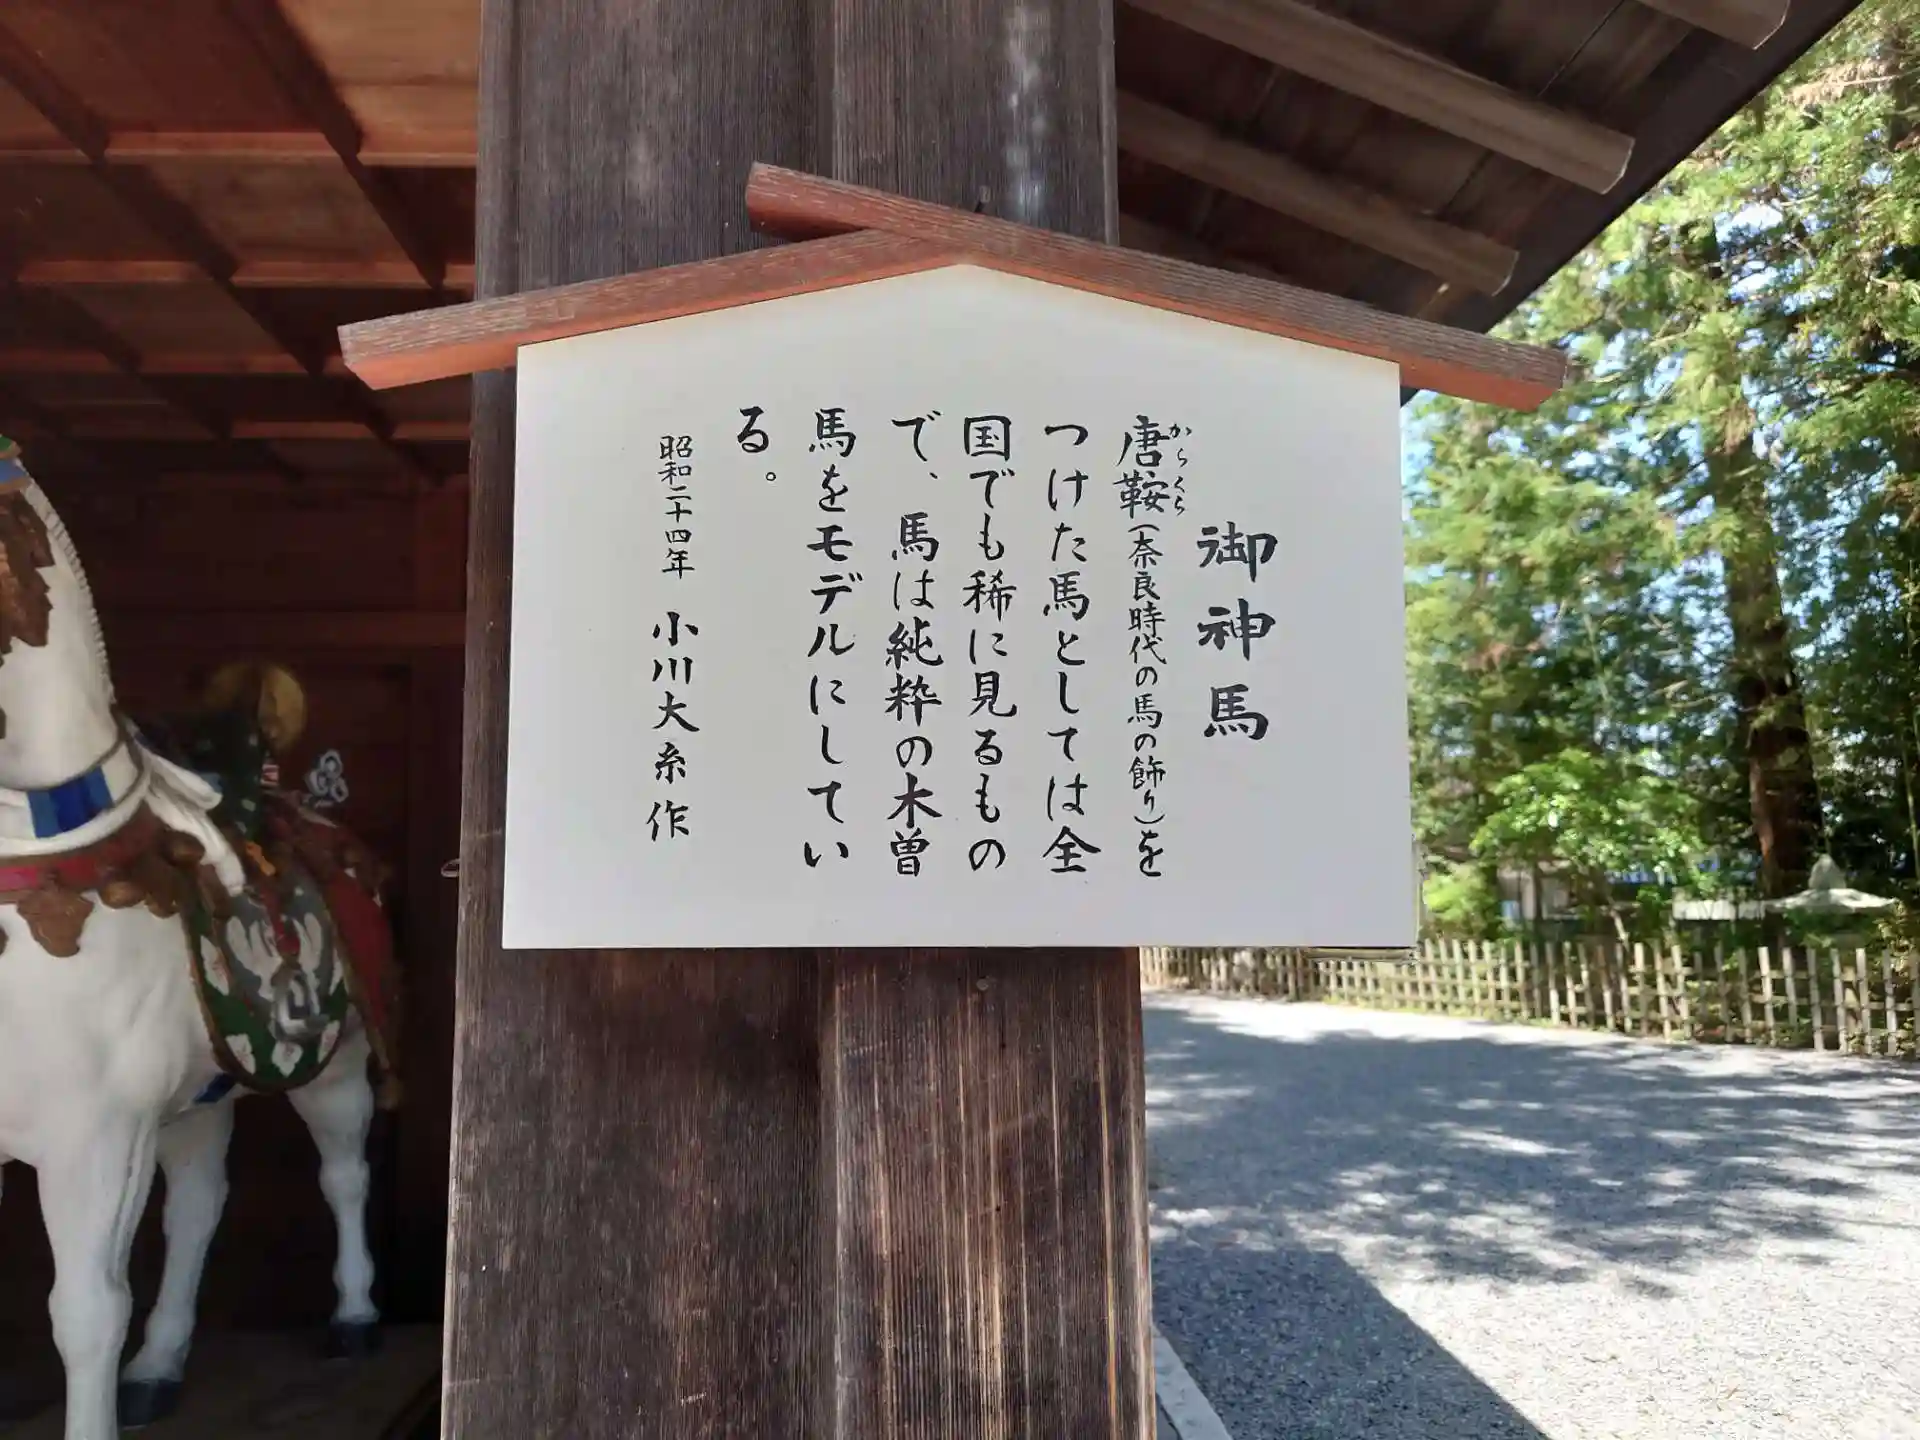 御神馬
唐鞍(奈良時代の馬の飾り)を
からくら
つけた馬としては全
国でも稀に見るもの
で、馬は純粋の木曽
馬をモデルにしてい
る。
昭和二十四年 小川大糸作